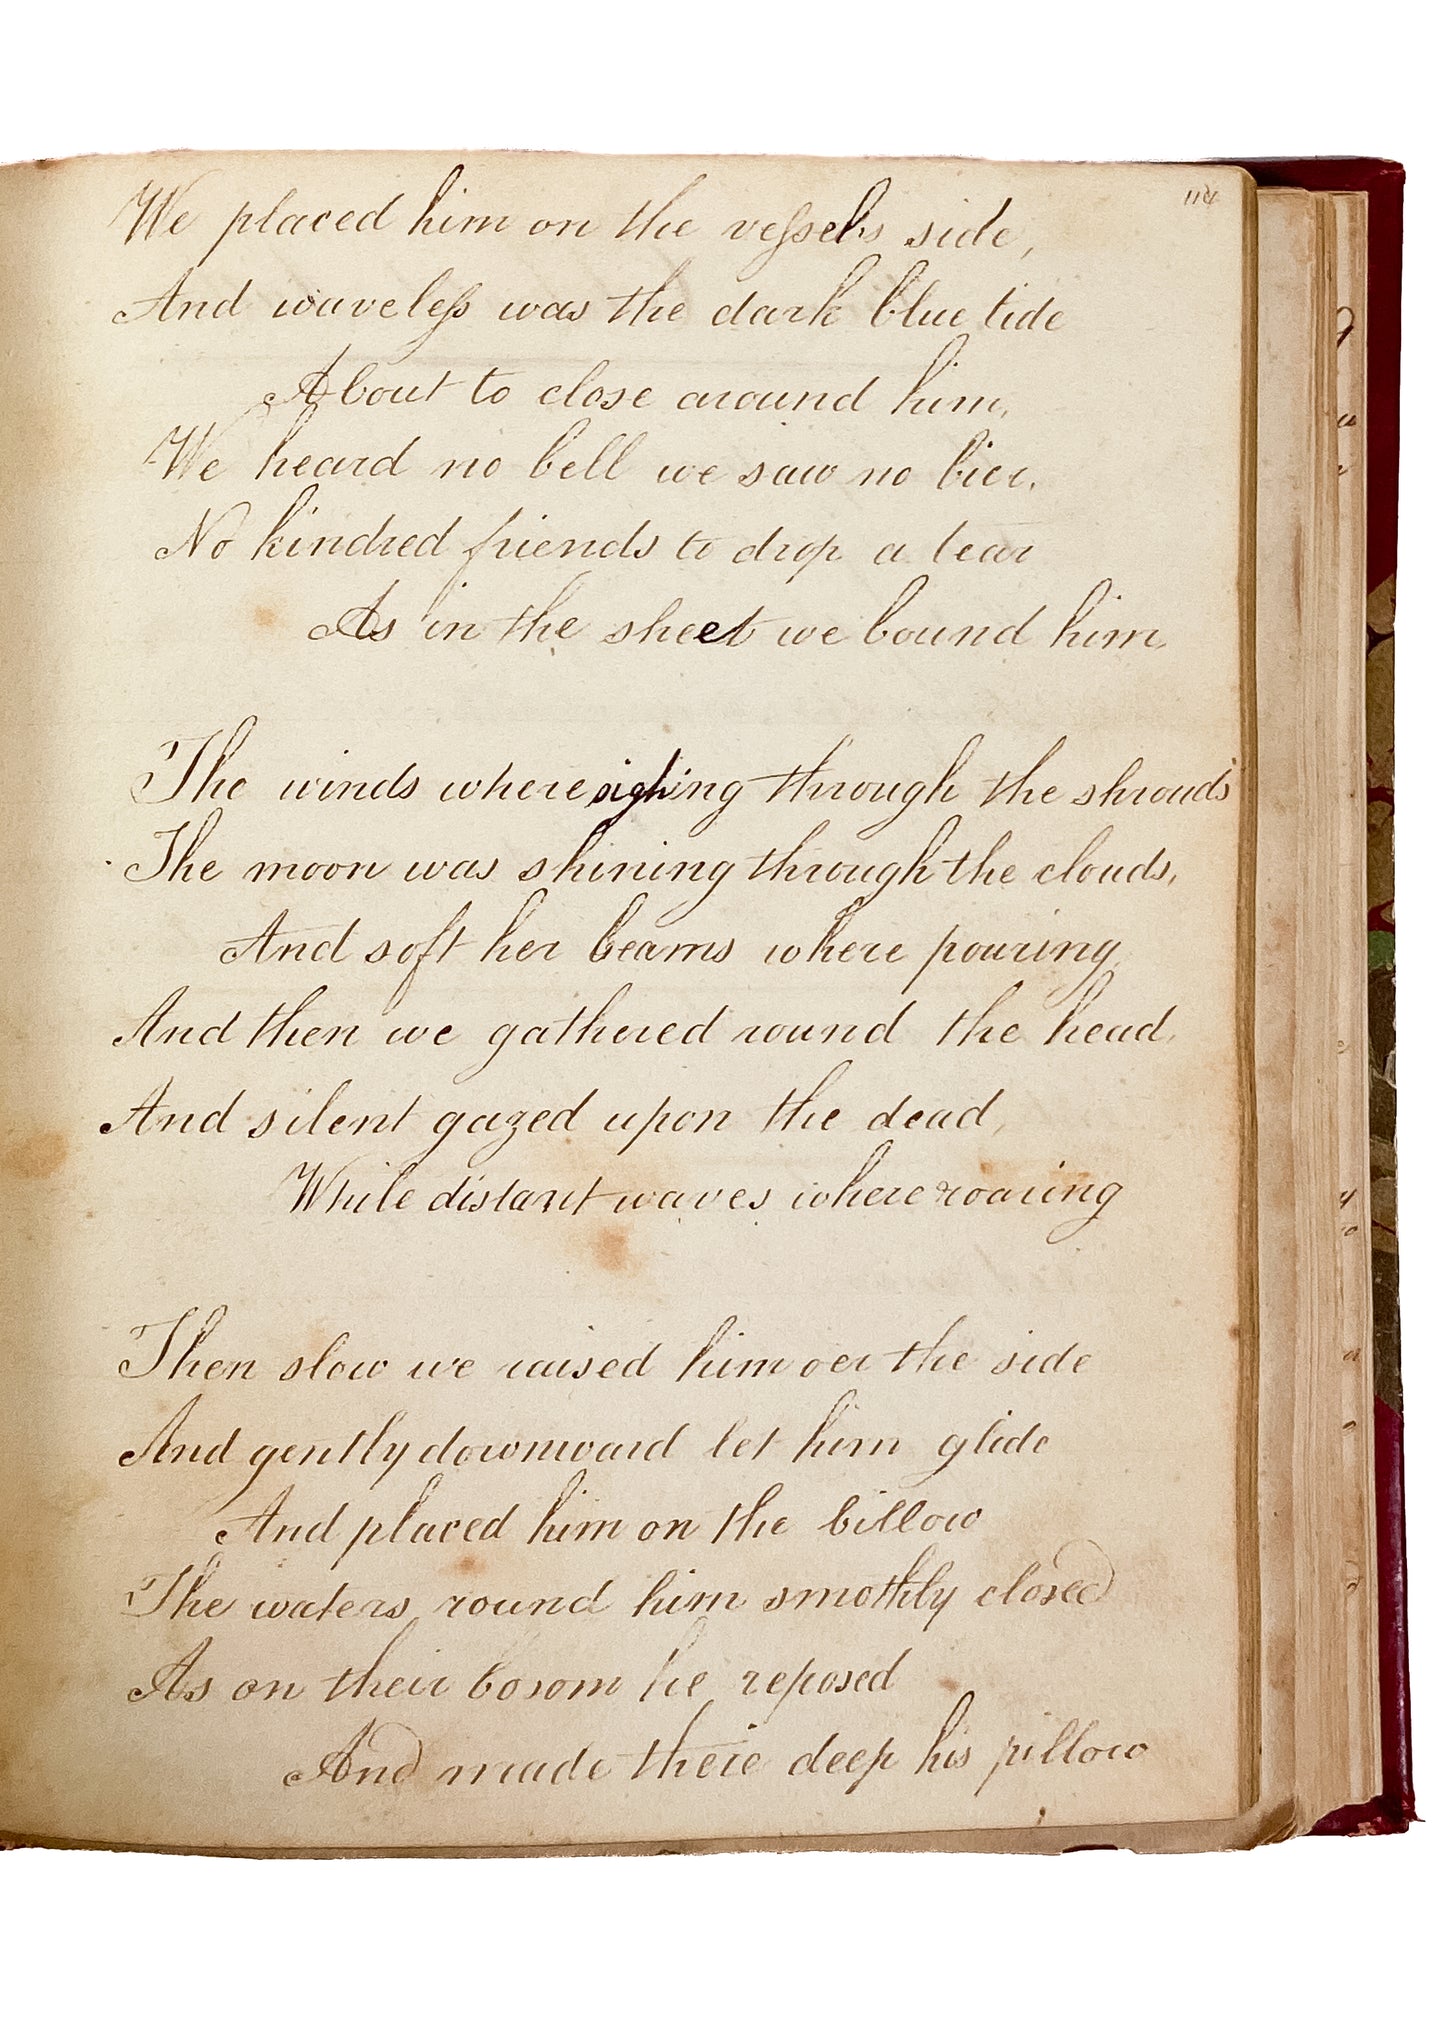 114
We placed him on the vessels side,
And waveless was the dark blue tide
About to close around him,
We heard no bell we saw no bier,
No kindred friends to drop a tear
As in the sheet we bound him,
The winds where sighing through the shrouds
The moon was shining through the clouds,
And soft her beams where pouring
And then we gathered round the head,
And silent gazed upon the dead,
While distant waves where roaring
Then slow we raised him oer the side
And gently downward let him glide
And placed him on the billow
The waters round him smothly closed
As on their bosom he reposed
And made their deep his pillow